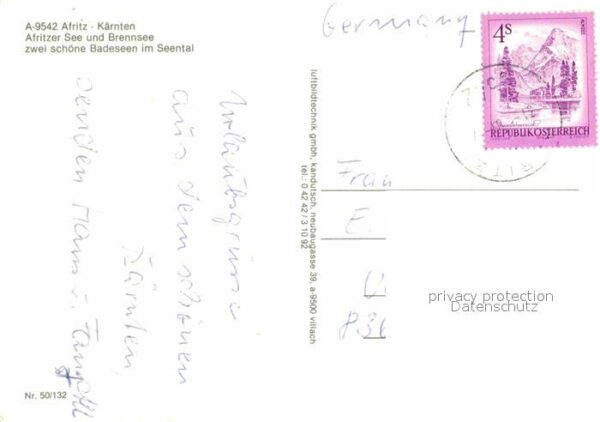 A-9542 Afritz - Kärnten
Afritzer See und Brennsee
zwei schöne Badeseen im Seental
Urlaubsgrüsse
aus dem schönen
Kärnten,
senden Hans u.
Nr. 50/132
luftbildtechnik gmbh, kandutsch, neubaugasse 39, a-9500 villach
tel.: 0 42 42 / 3 10 92
Germany
4S
REPUBLIK ÖSTERREICH
Frau
E.
836
privacy protection
Datenschutz